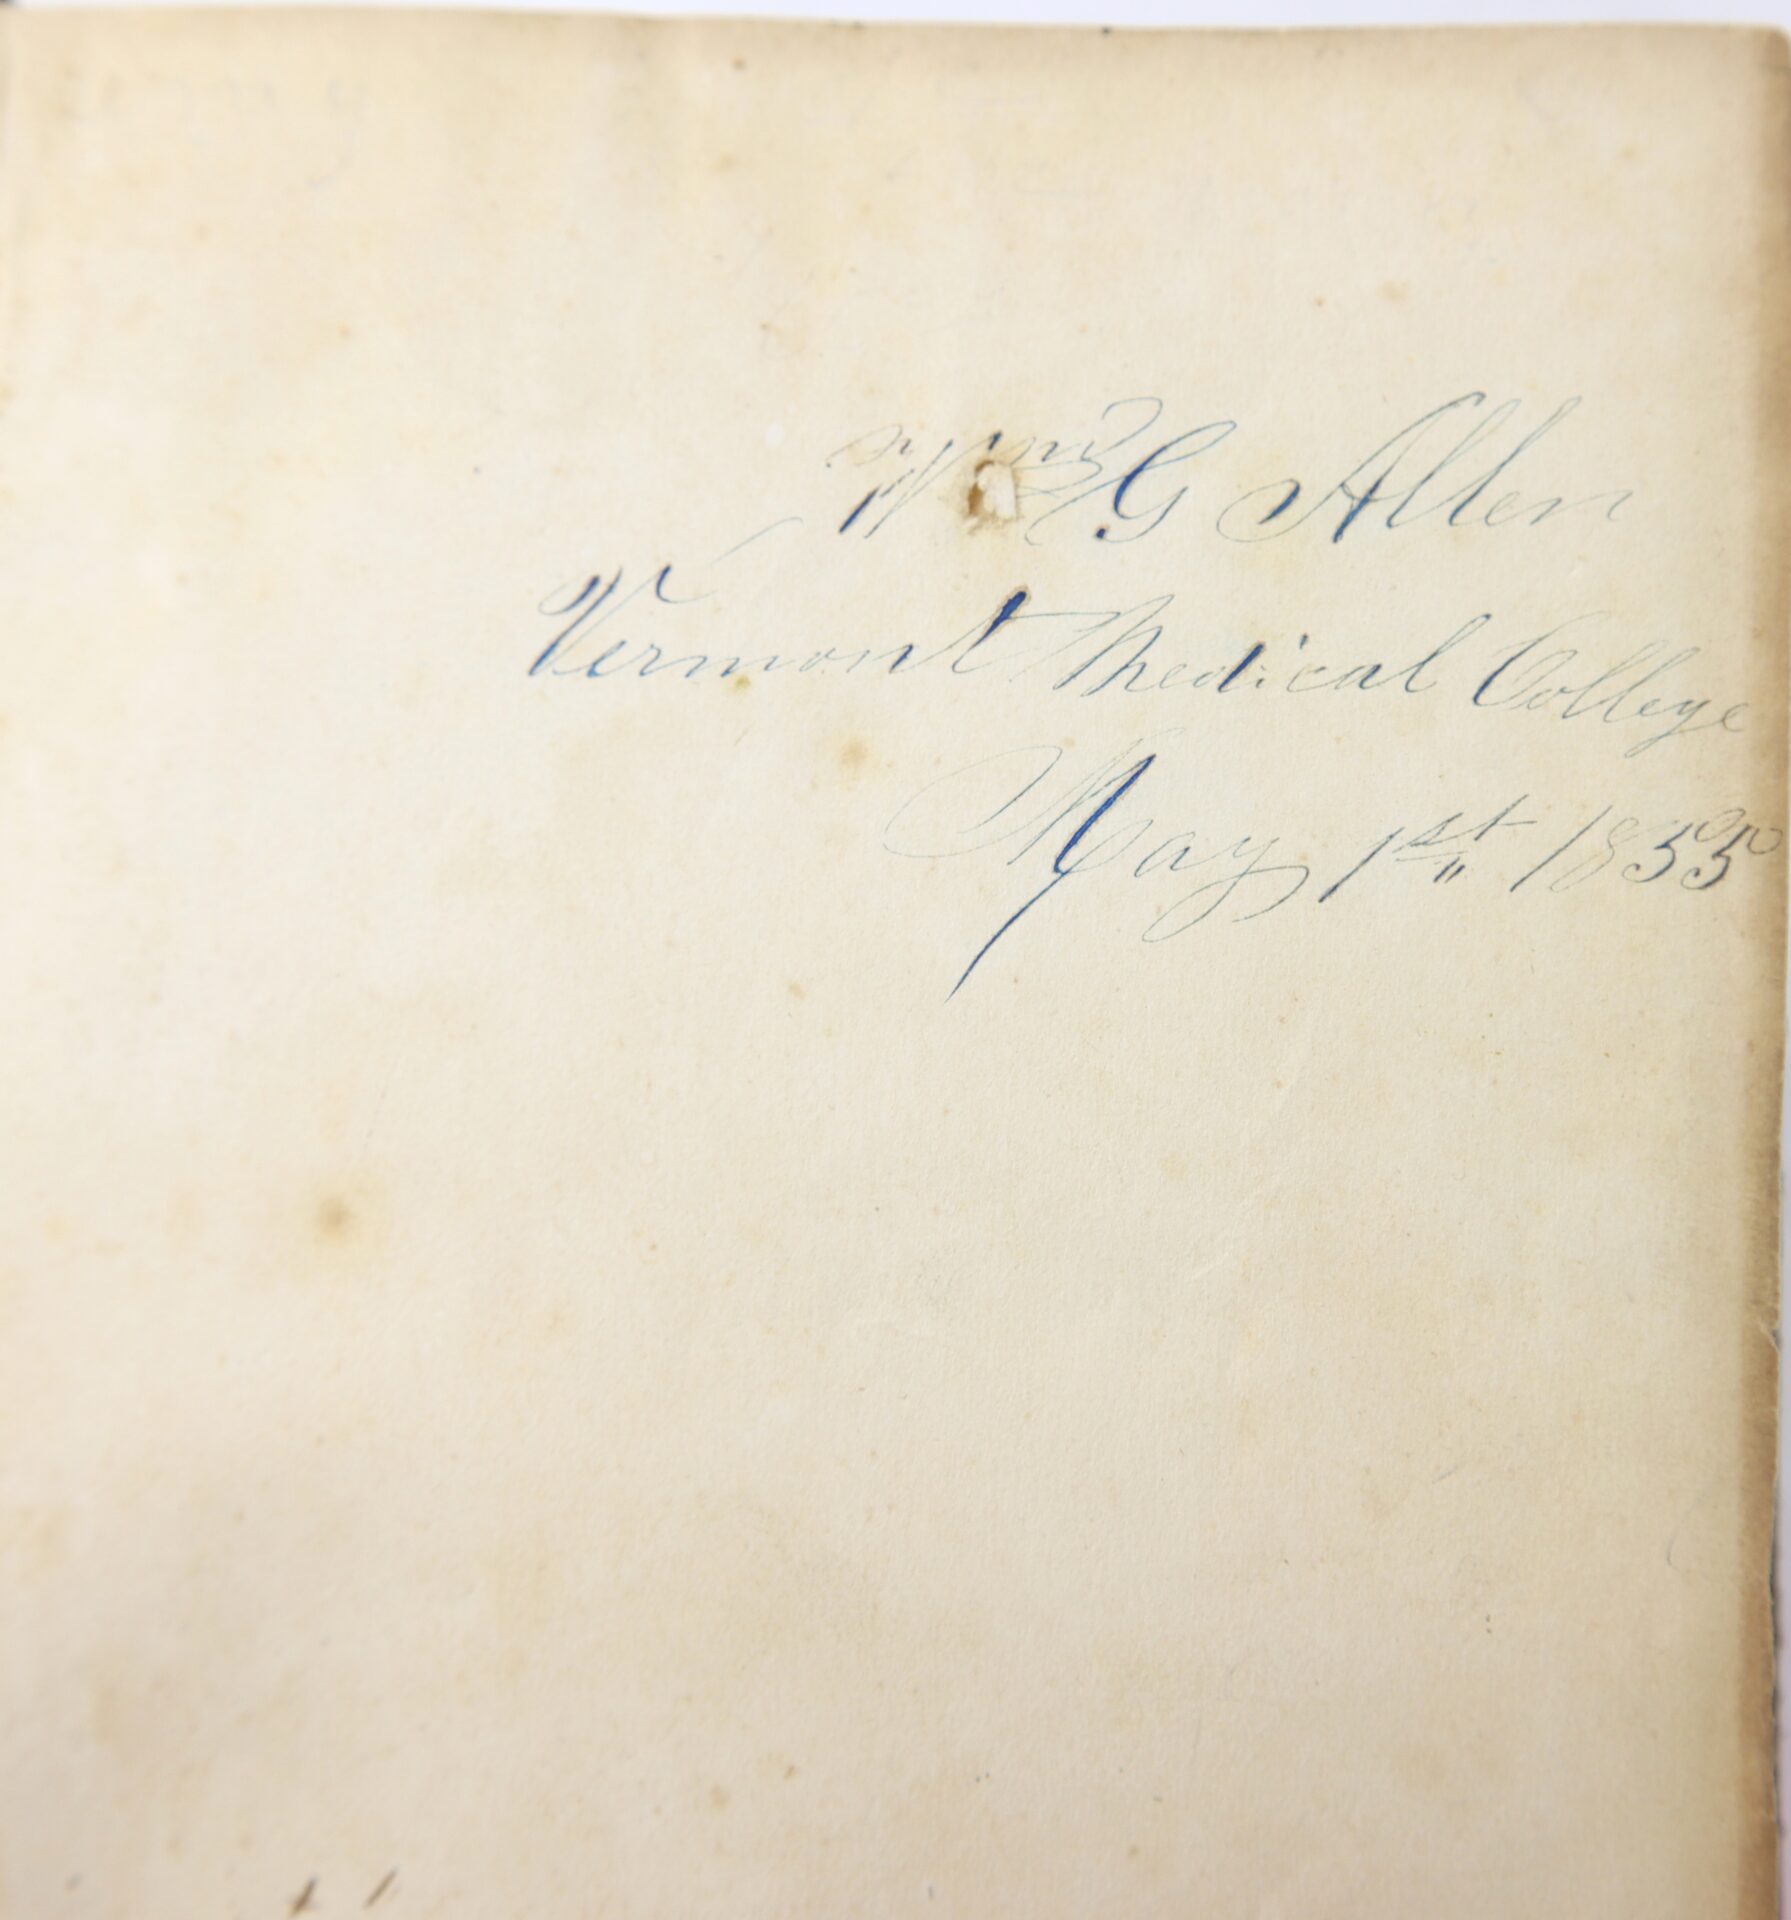 Wm G Allen
Vermont Medical College
May 1st 1855